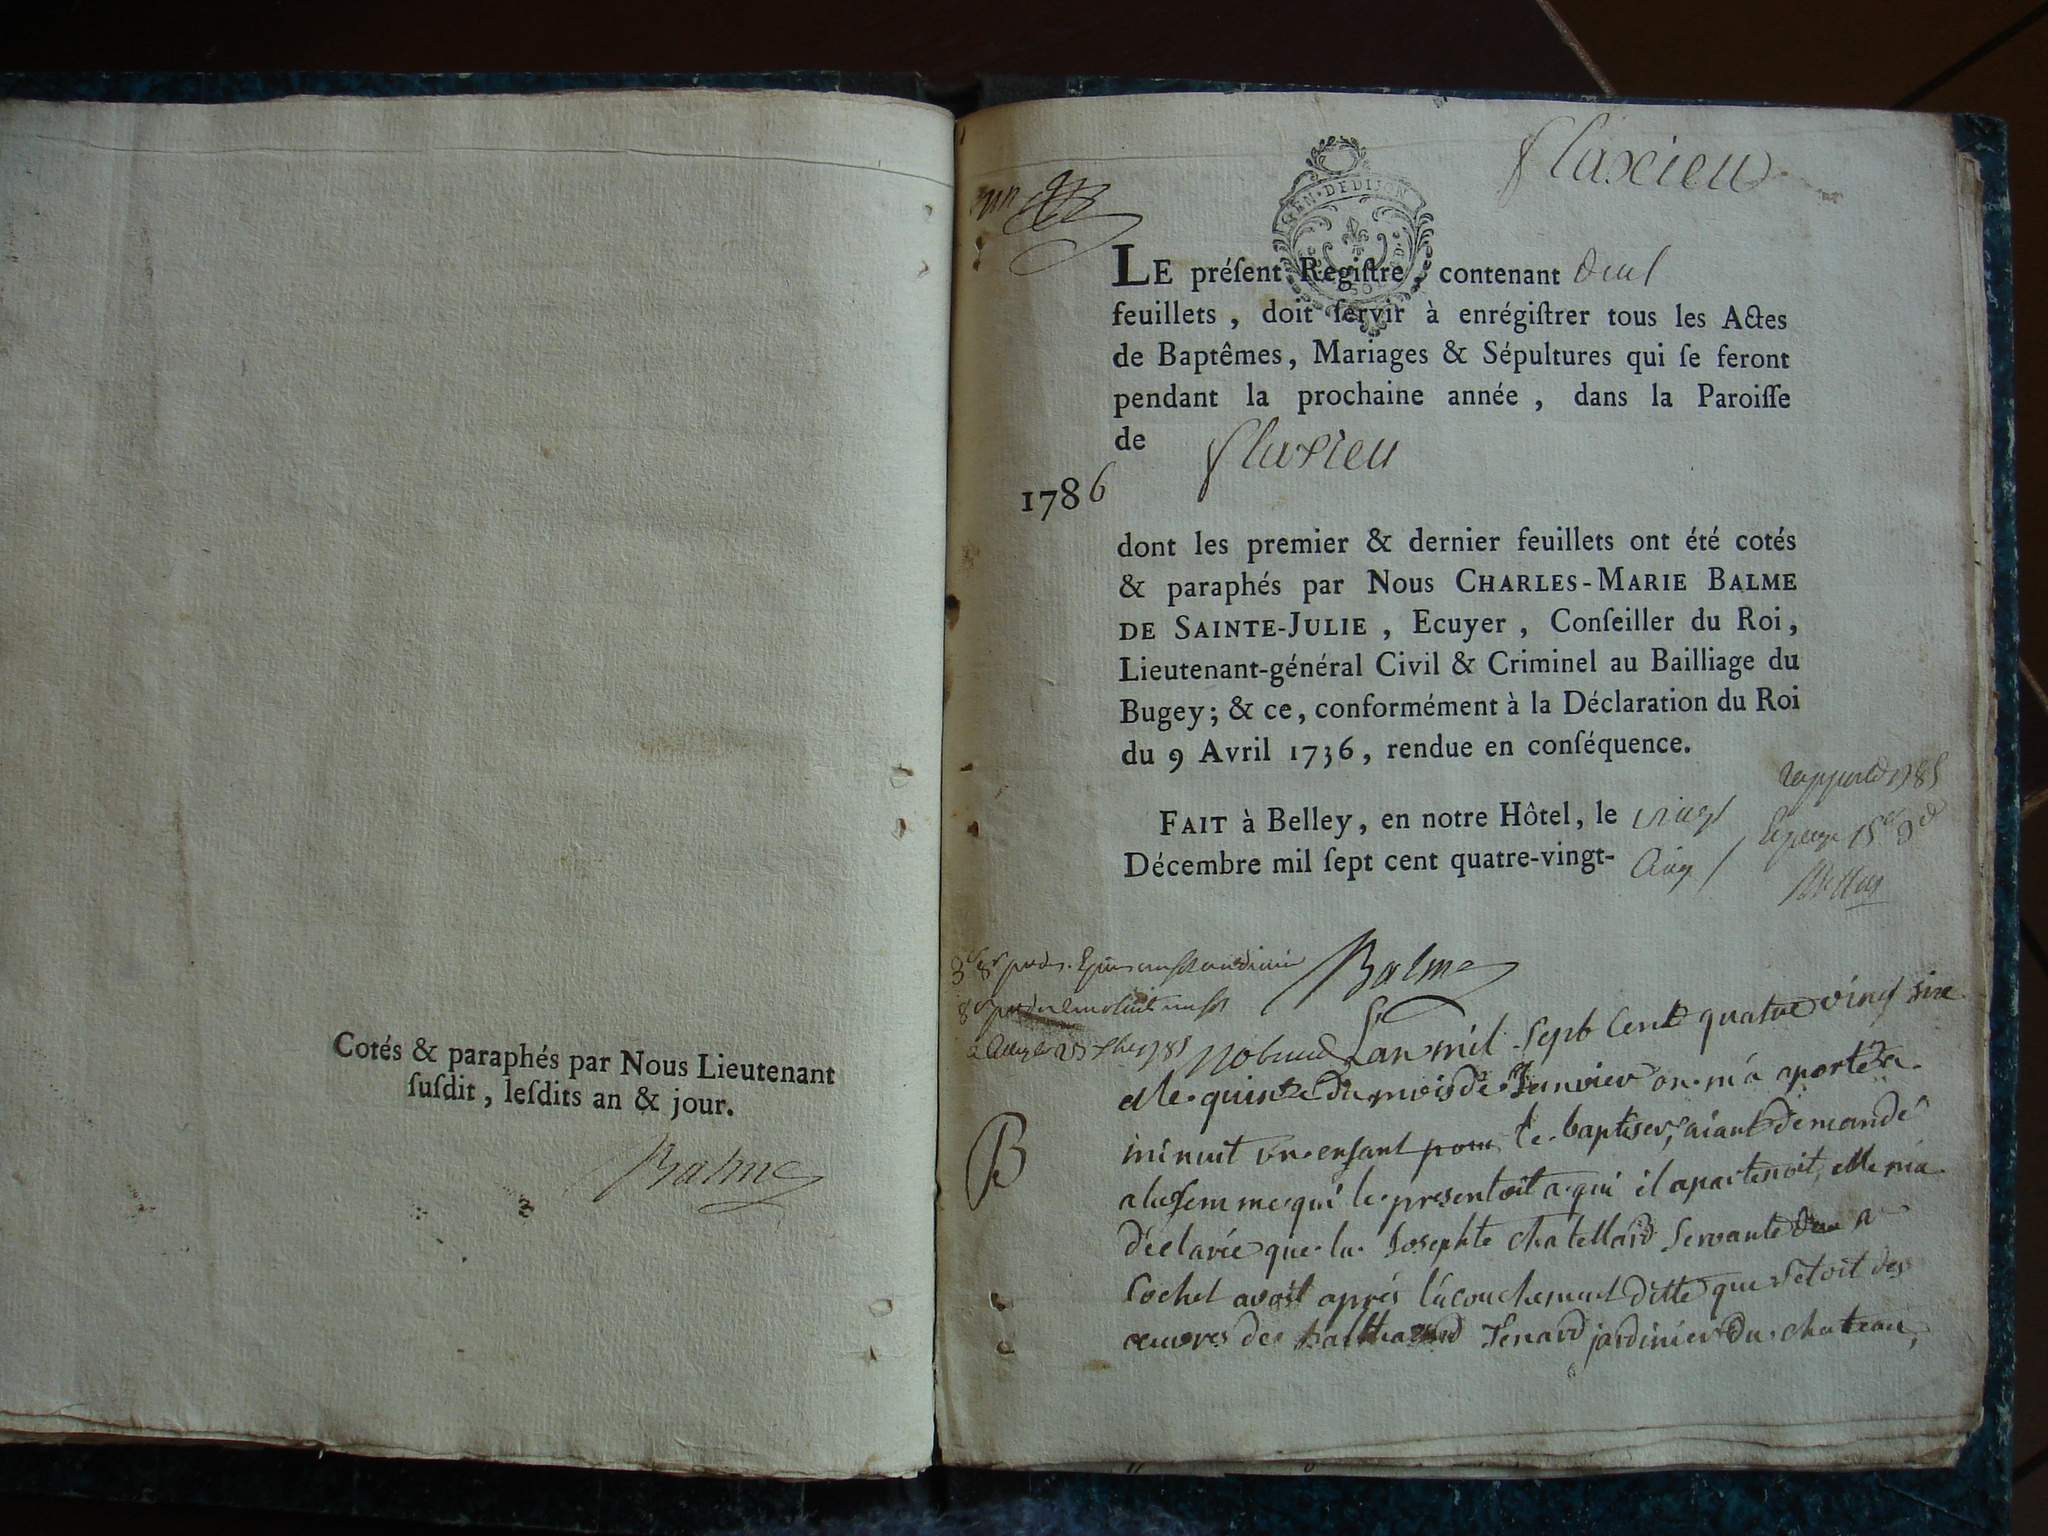 Cotés & paraphés par Nous Lieutenant
ſuſdit, leſdits an & jour.
Balme
flaxieu
GEN·DE DIJON
LE préſent Regiſtre, contenant deux
feuillets, doit ſervir à enrégiſtrer tous les Actes
de Baptêmes, Mariages & Sépultures qui ſe feront
pendant la prochaine année, dans la Paroiſſe
de flaxieu
1786
dont les premier & dernier feuillets ont été cotés
& paraphés par Nous CHARLES-MARIE BALME
DE SAINTE-JULIE, Ecuyer, Conſeiller du Roi,
Lieutenant-général Civil & Criminel au Bailliage du
Bugey; & ce, conformément à la Déclaration du Roi
du 9 Avril 1736, rendue en conſéquence.
FAIT à Belley, en notre Hôtel, le vingt
Décembre mil ſept cent quatre-vingt-Cinq
Balme
Lan mil sept Cent quatre vingt six
et le quinze du mois de Janvier on m'a aporté a
B
minuit un enfant pour le baptiser, aiant demandé
a la femme qui le presentoit a qui il apartenoit, elle m'a
déclarée que la Josephte Chatellard Servante
Cochet avoit après l'acouchement ditte que s'etoit des
œuvres de balthazard Tenard jardinier du chateau,